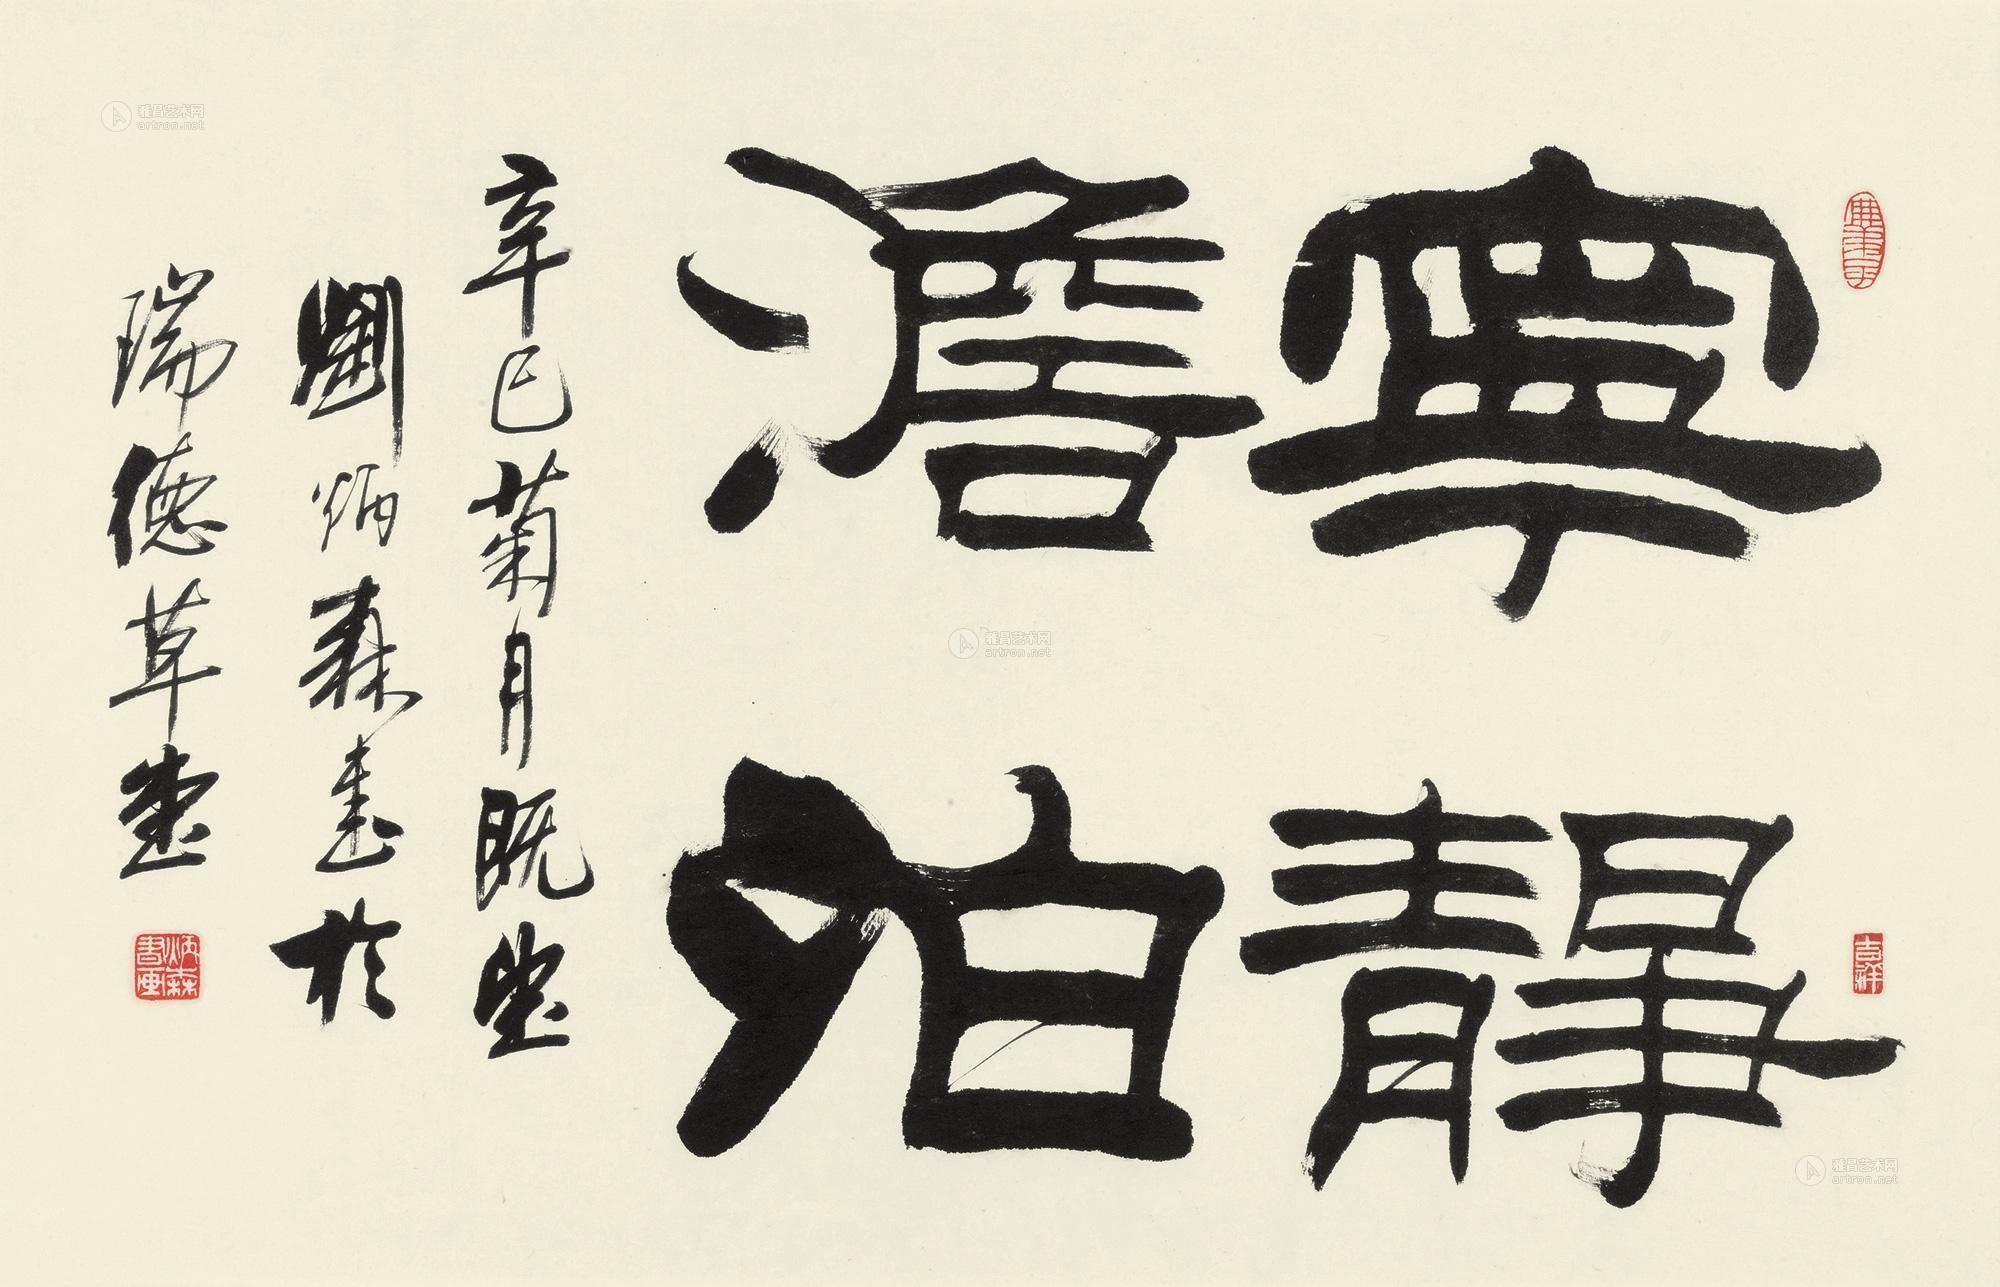 寧靜
澹泊
辛巳菊月既望
劉炳森書於
瑞德草堂
吉祥
炳森書画
雅昌艺术网
artron.net
雅昌艺术网
artron.net
雅昌艺术网
artron.net